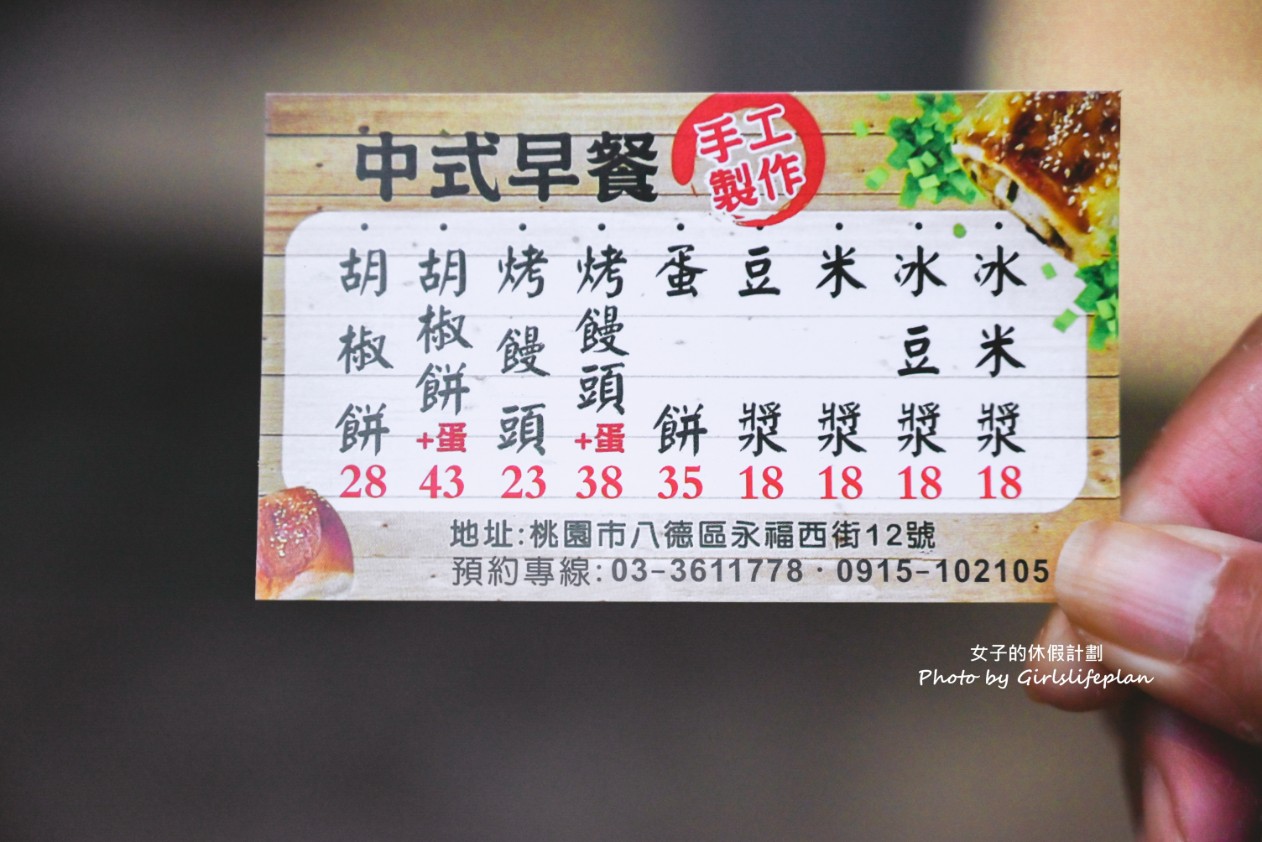 中式早餐
手工
製作
胡椒餅 28
胡椒餅+蛋 43
烤饅頭 23
烤饅頭+蛋 38
蛋餅 35
豆漿 18
米漿 18
冰豆漿 18
冰米漿 18
地址:桃園市八德區永福西街12號
預約專線:03-3611778·0915-102105
女子的休假計劃
Photo by Girlslifeplan